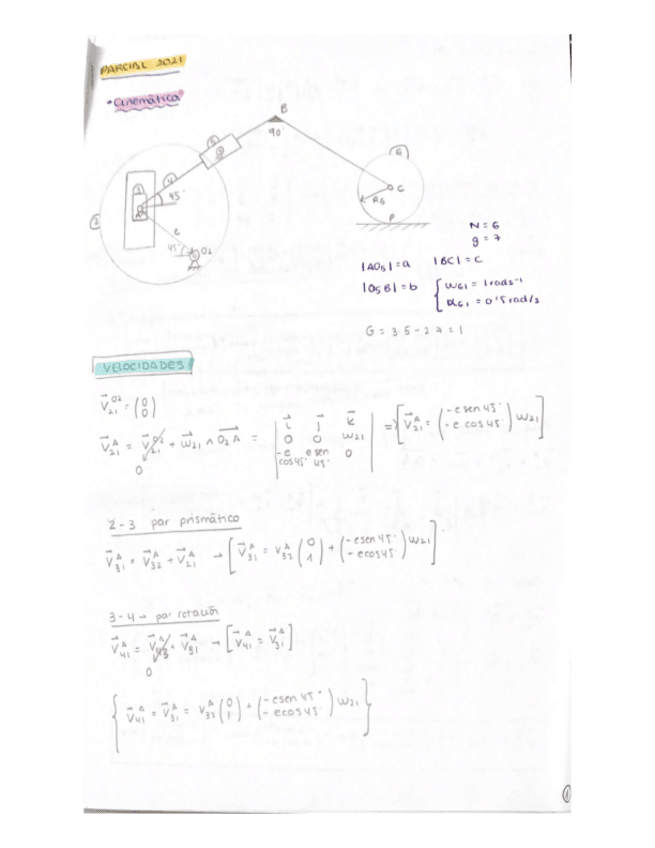 PARCIAL 2021
• Cinemática
B
90°
6
5
4
3
45°
A
C
R6
2
e
45°
O2
P
N = 6
g = 7
|AO5| = a |BC| = c
|O5B| = b { ω61 = 1 rad s⁻¹
α61 = 0'5 rad/s
G = 3·5 - 2·7 = 1
VELOCIDADES
V⃗21^O2 = (0 0)
V⃗21^A = V⃗21^O2 + ω⃗21 ∧ O2A = | i⃗ j⃗ k⃗ | ⇒ [V⃗21^A = (-e sen45° -e cos45°) ω21]
0 0 ω21
-e cos45° e sen 45° 0
0
2-3 par prismático
V⃗31^A = V⃗32^A + V⃗21^A → [V⃗31^A = V32^A (0 1) + (-e sen45° -e cos45°) ω21]
3-4 → par rotación
V⃗41^A = V⃗43^A + V⃗31^A → [V⃗41^A = V⃗31^A]
0
{ V⃗41^A = V⃗31^A = V32^A (0 1) + (-e sen45° -e cos45°) ω21 }
1